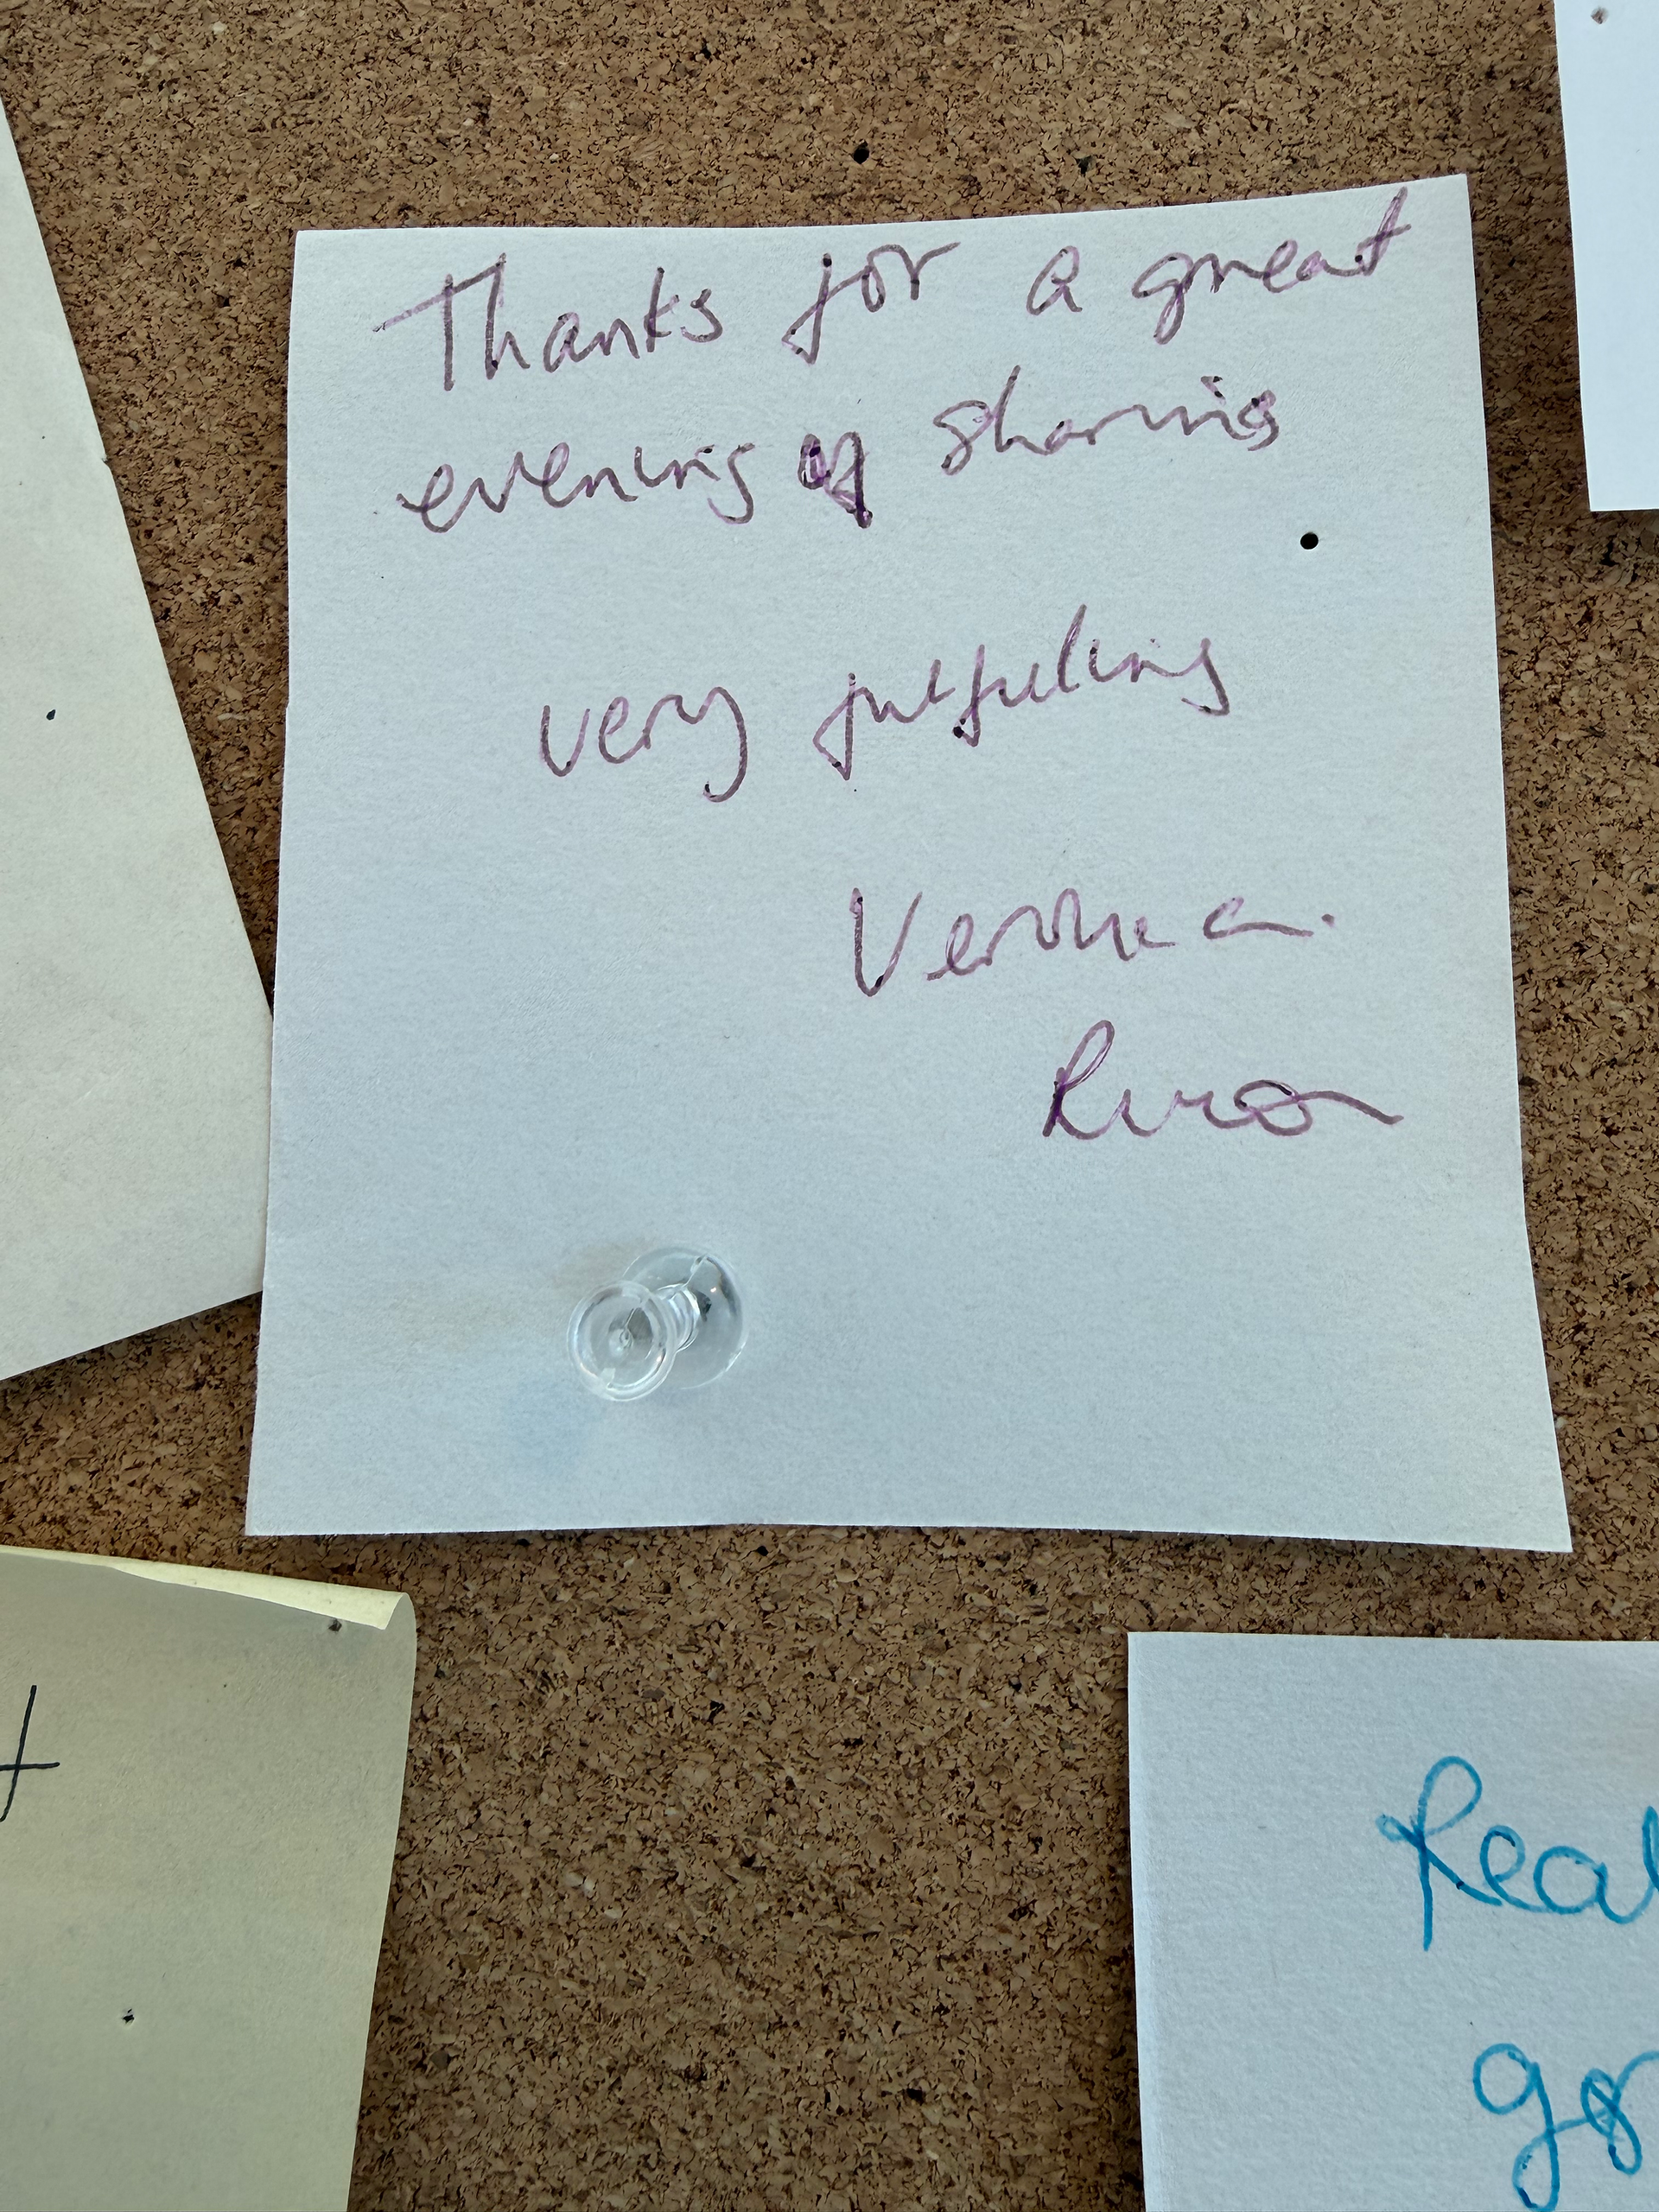 Thanks for a great
evening of sharing
very fulfilling
Veronica.